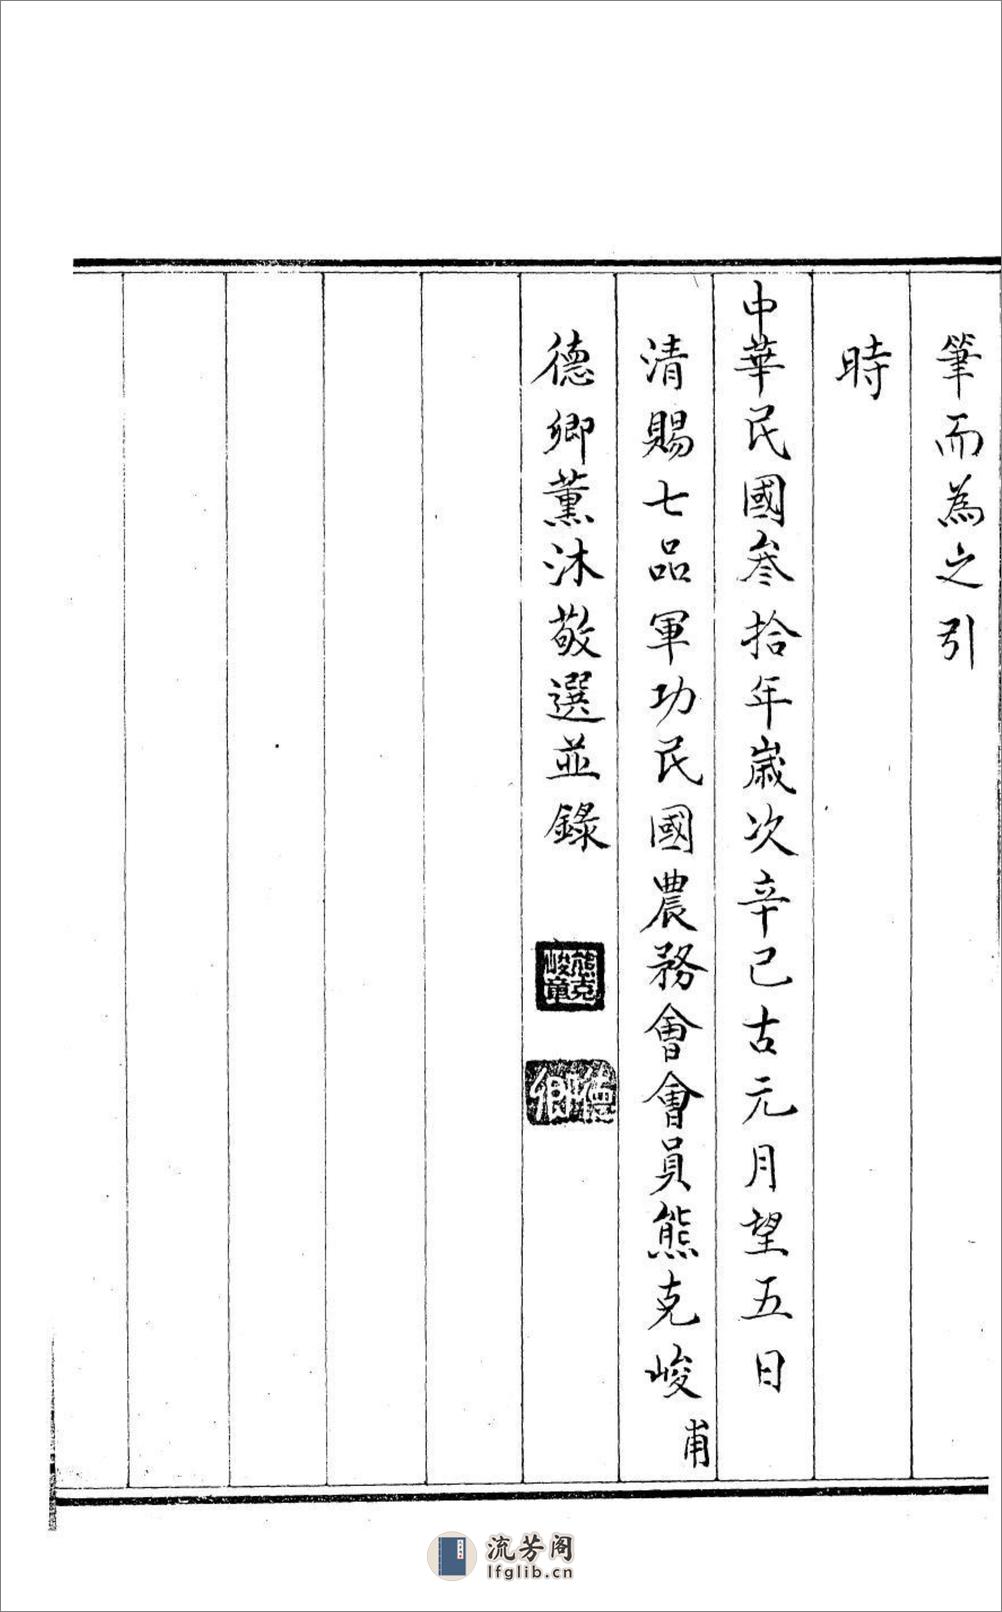 筆而為之引
時
中華民國叁拾年歲次辛巳古元月望五日
清賜七品軍功民國農務會會員熊克峻甫
德卿薰沐敬選並錄
熊克峻章
德卿
流芳阁
lfglib.cn